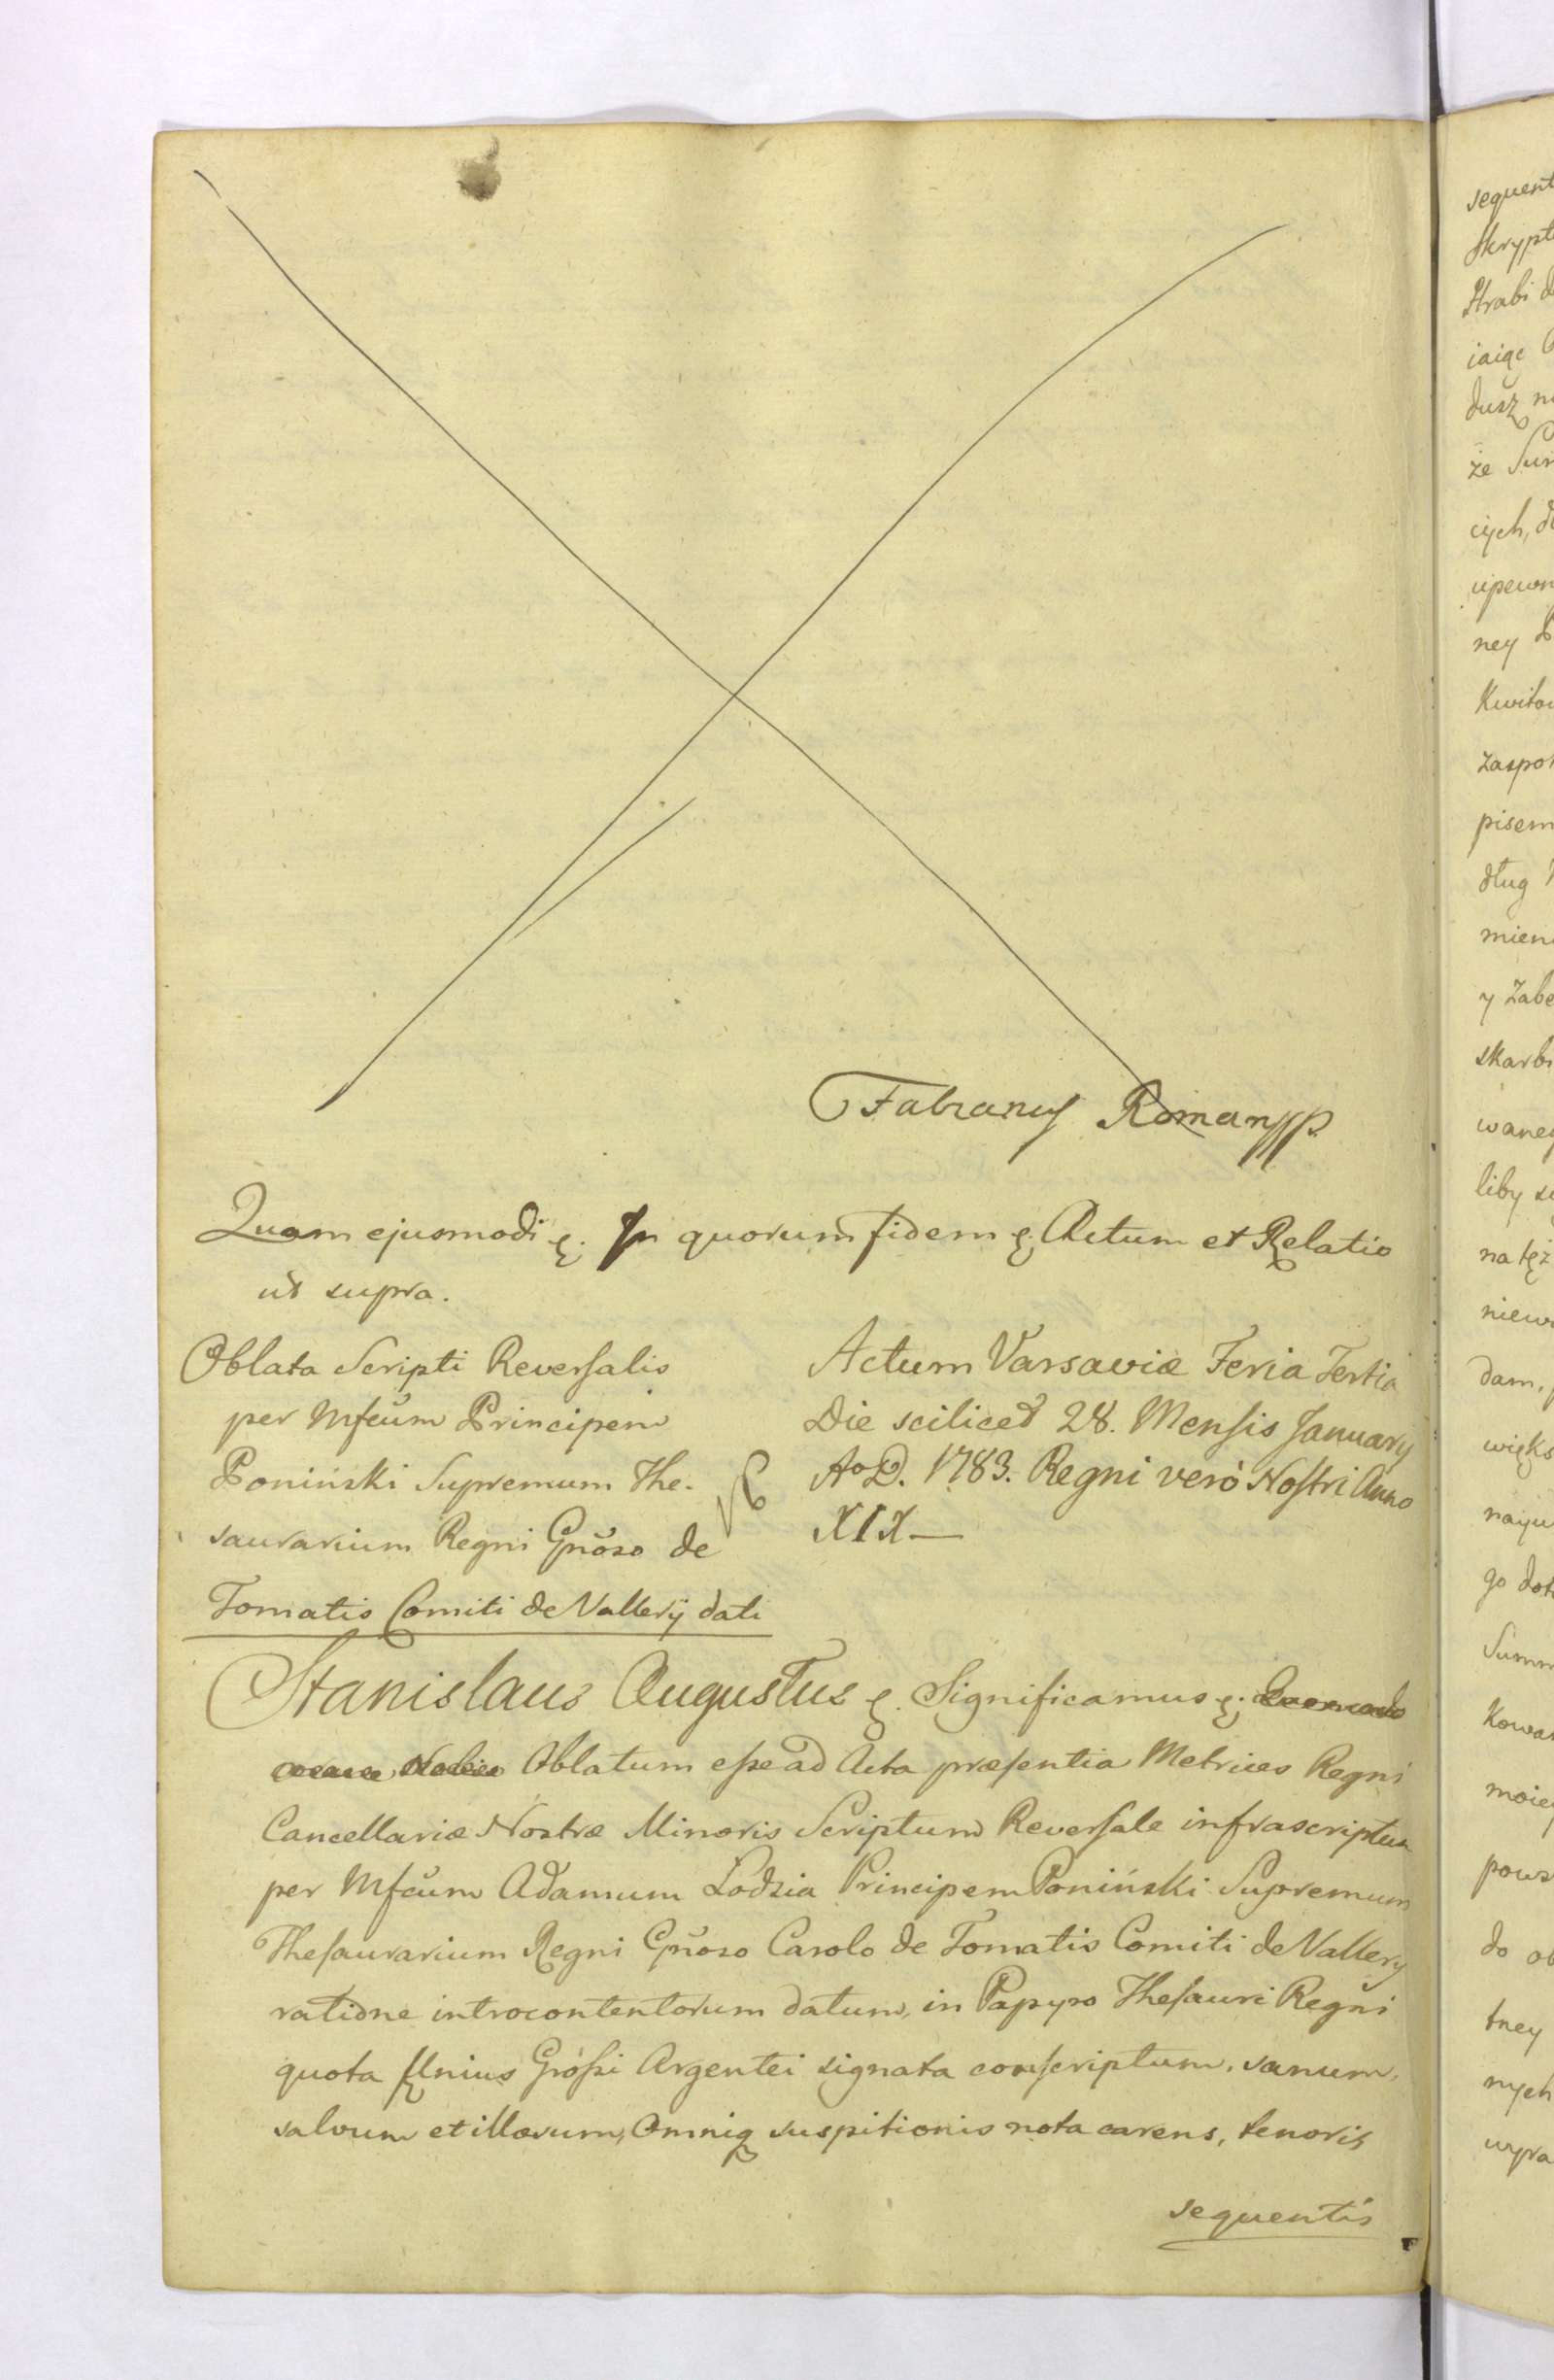 Fabrany Roman mp.
Quam ejusmodi &. In quorum fidem &. Actum et Relatio
ut supra.
Oblata Scripti Reversalis
per Mfcum Principem
Poniński Supremum The-
saurarium Regni Gn̄oso de
Tomatis Comiti de Vallerÿ dati
Actum Varsaviæ Feria Tertia
Die scilicet 28. Mensis January
A° D. 1783. Regni verò Nostri Anno
XIX—
Stanislaus Augustus &. Significamus &.
Oblatum esse ad Acta præsentia Metrices Regni
Cancellariæ Nostræ Minoris Scriptum Reversale infrascriptum
per Mfcum Adamum Lodzia Principem Poniński Supremum
Thesaurarium Regni Gn̄oso Carolo de Tomatis Comiti de Vallery
ratione introcontentorum datum, in Papyro Thesauri Regni
quota Unius Grossi Argentei signata conscriptum, sanum,
salvum et illæsum, Omniq suspitionis nota carens, tenoris
sequentis
sequent
Skrypt
Hrabi d
iaiąc
dusz n
że Sum
cych, d
upewn
ney
Kwitow
zaspo
pisem
dług
mien
y Zabe
skarb
wane
liby s
na tęż
niew
dam,
więks
nayu
go dot
Summ
Kowa
moie
pows
do ob
tney
nych
wypra